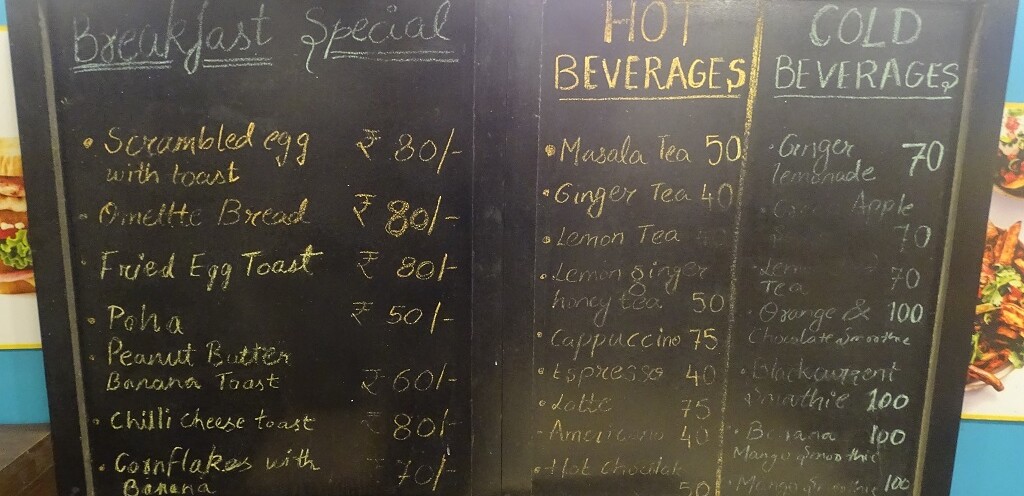 Breakfast Special
• Scrambled egg ₹ 80/-
with toast
• Omettc Bread ₹ 80/-
• Fried Egg Toast ₹ 80/-
• Poha ₹ 50/-
• Peanut Butter
Banana Toast ₹ 60/-
• Chilli cheese toast ₹ 80/-
• Cornflakes with ₹ 70/-
Banana
HOT
BEVERAGES
• Masala Tea 50
• Ginger Tea 40
• Lemon Tea
• Lemon ginger
honey tea 50
• Cappuccino 75
• Espresso 40
• Latte 75
- Americano 40
• Hot Chocolate
50
COLD
BEVERAGES
• Ginger 70
lemonade
Apple
70
Tea 70
• Orange & 100
Chocolate Smoothie
• Blackcurrent
Smathie 100
• Banana 100
Mango Smoothie
• Mango Smoothie 100